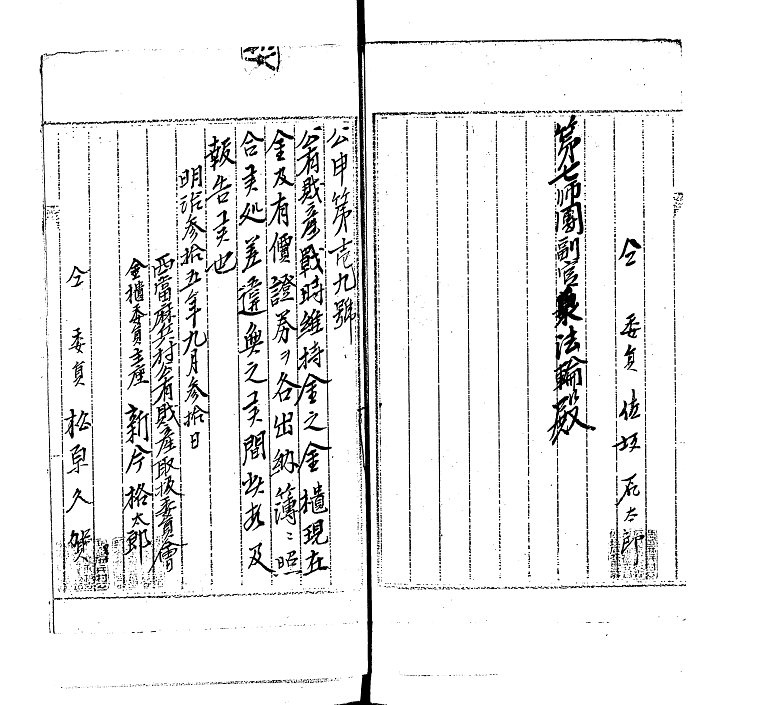 仝 委員 佐坂 太郎
第七師團副官 法輪殿
公申第壱九號
公有財産戰時維持金之金櫃現在
金及有價證券ヲ各出納簿ニ照
合 処差違無之 間 及
報告 也
明治参拾五年九月参拾日
西當麻 村公有財産取扱委員會
金櫃委員主座 新 格太郎
仝 委員 松原久賀